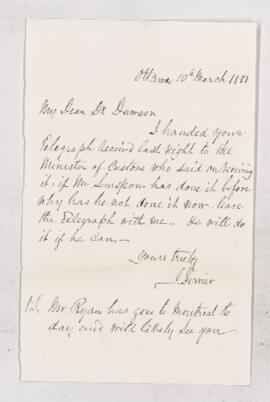 Ottawa 10th March 1881
My Dear Dr Dawson
I handed your
Telegraph received last night to the
Minister of Customs who said on receiving
it, if Mr Simpson has done it before
why has he not done it now. leave
the Telegraph with me — He will do
it if he can. —
Yours truly
J Ferrier
P.S. Mr Ryan has gone to Montreal to
day and will likely see you